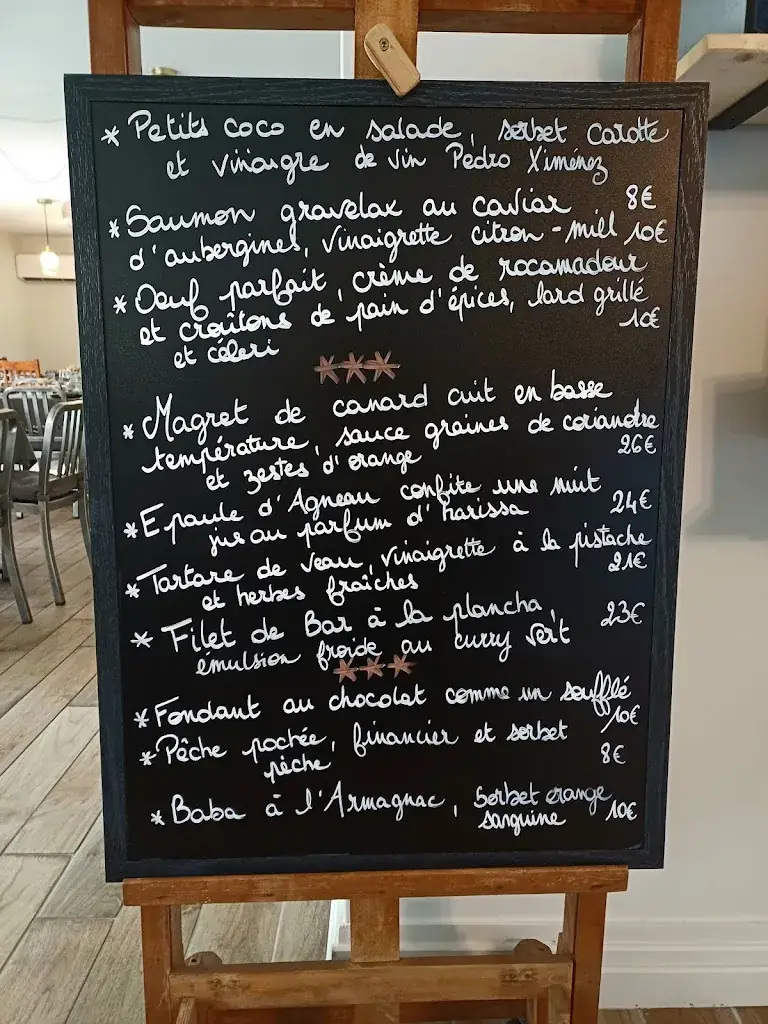 * Petits coco en salade, sorbet carotte
et vinaigre de vin Pedro Ximénez
8€
* Saumon gravelax au caviar
d'aubergines, vinaigrette citron-miel 10€
* Oeuf parfait, crème de rocamadour
et croûtons de pain d'épices, lard grillé
et céleri 10€
***
* Magret de canard cuit en basse
température, sauce graines de coriandre
et zestes d'orange 26€
* Epaule d'Agneau confite une nuit
jus au parfum d'harissa 24€
* Tartare de veau, vinaigrette à la pistache
et herbes fraîches 21€
* Filet de Bar à la plancha, 23€
émulsion froide au curry vert
***
* Fondant au chocolat comme un soufflé
10€
* Pêche pochée, financier et sorbet
pêche 8€
* Baba à l'Armagnac, sorbet orange
sanguine 10€